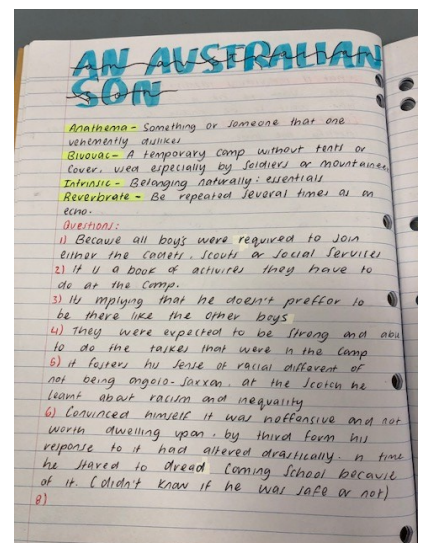 AN AUSTRALIAN
SON
Anathema - Something or someone that one
vehemently dislikes
Bivouac - A temporary camp without tents or
cover, used especially by soldiers or mountainee
Intrinsic - Belonging naturally: essentials
Reverbrate - Be repeated several times as an
echo.
Questions:
1) Because all boys were required to join
either the cadets, scouts or social services
2) It is a book of activites they have to
do at the camp.
3) Its implying that he doesn't preffor to
be there like the other boys
4) They were expected to be strong and able
to do the taskes that were in the camp
5) it fosters his sense of racial different of
not being anglo-saxxan. at the scotch he
learnt about racism and inequality
6) Convinced himself it was noffensive and not
worth dwelling upon. by third form his
response to it had altered drastically. n time
he stared to dread coming school because
of it. (didn't know if he was safe or not)
8)